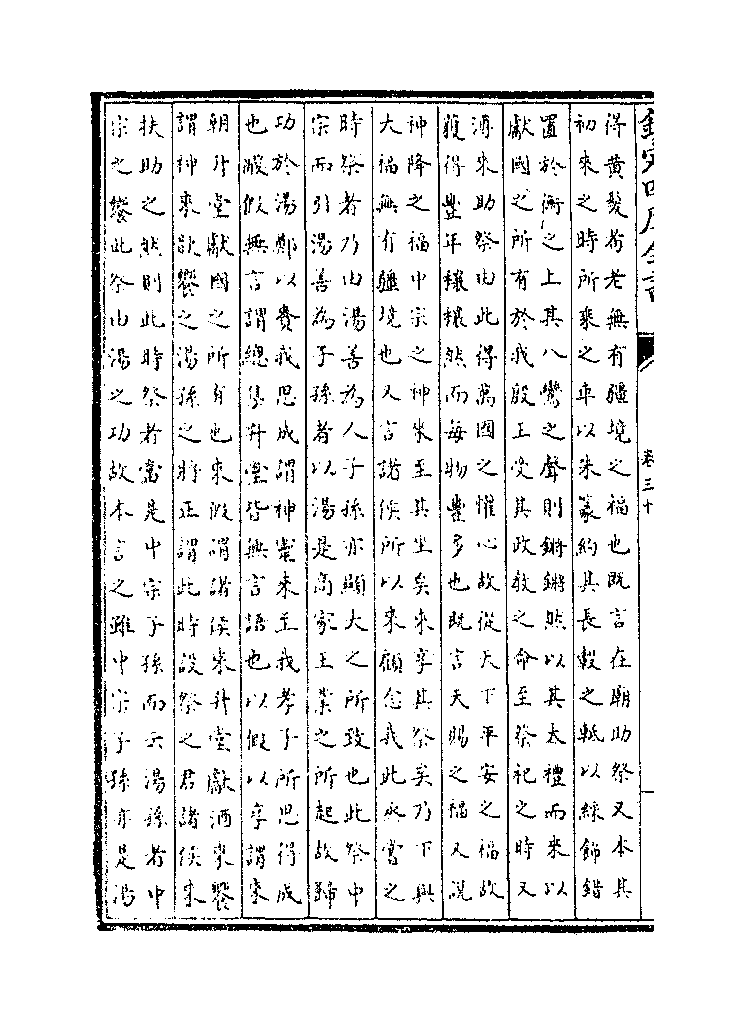 欽定四庫全書
卷三十
得黃髮耇老無有疆境之福也既言在廟助祭又本其
初來之時所乘之車以朱篆約其長轂之軧以綵飾錯
置於衡之上其八鸞之聲則鏘鏘然以其太禮而來以
獻國之所有於我殷王受其政敎之命至祭祀之時又
溥來助祭由此得萬國之懽心故從天下平安之福故
獲得豐年穰穰然而每物豐多也既言天賜之福又說
神降之福中宗之神來至其坐矣來享其祭矣乃下與
大福無有疆境也又言諸侯所以來顧念我此烝嘗之
時祭者乃由湯善為人子孫亦顯大之所致也此祭中
宗而引湯善為子孫者以湯是商家王業之所起故歸
功於湯鄭以賚我思成謂神靈來至我孝子所思得成
也鬷假無言謂總集升堂皆無言語也以假以享謂來
朝升堂獻國之所有也來假謂諸侯來升堂獻酒來饗
謂神來歆饗之湯孫之將正謂此時設祭之君諸侯來
扶助之然則此時祭者當是中宗子孫而云湯孫者中
宗之饗此祭由湯之功故本言之雖中宗子孫亦是湯